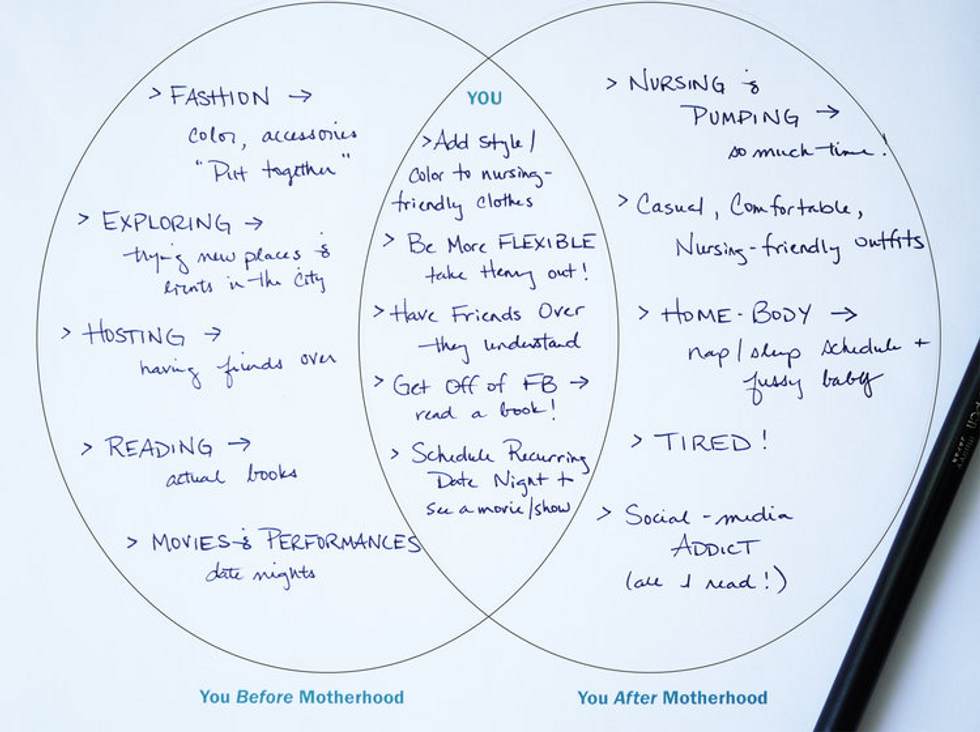 > FASHION →
color, accessories
"Put together"
> EXPLORING →
trying new places &
events in the City
> HOSTING →
having friends over
> READING →
actual books
> MOVIES & PERFORMANCES
date nights
YOU
> Add style /
Color to nursing-
friendly clothes
> Be More FLEXIBLE
take Henry out!
> Have Friends Over
they understand
> Get Off of FB →
read a book!
> Schedule Recurring
Date Night +
see a movie/show
> NURSING &
PUMPING →
so much time!
> Casual, Comfortable,
Nursing-friendly outfits
> HOME-BODY →
nap/sleep schedule +
fussy baby
> TIRED!
> Social-media
ADDICT
(all I read!)
You Before Motherhood
You After Motherhood